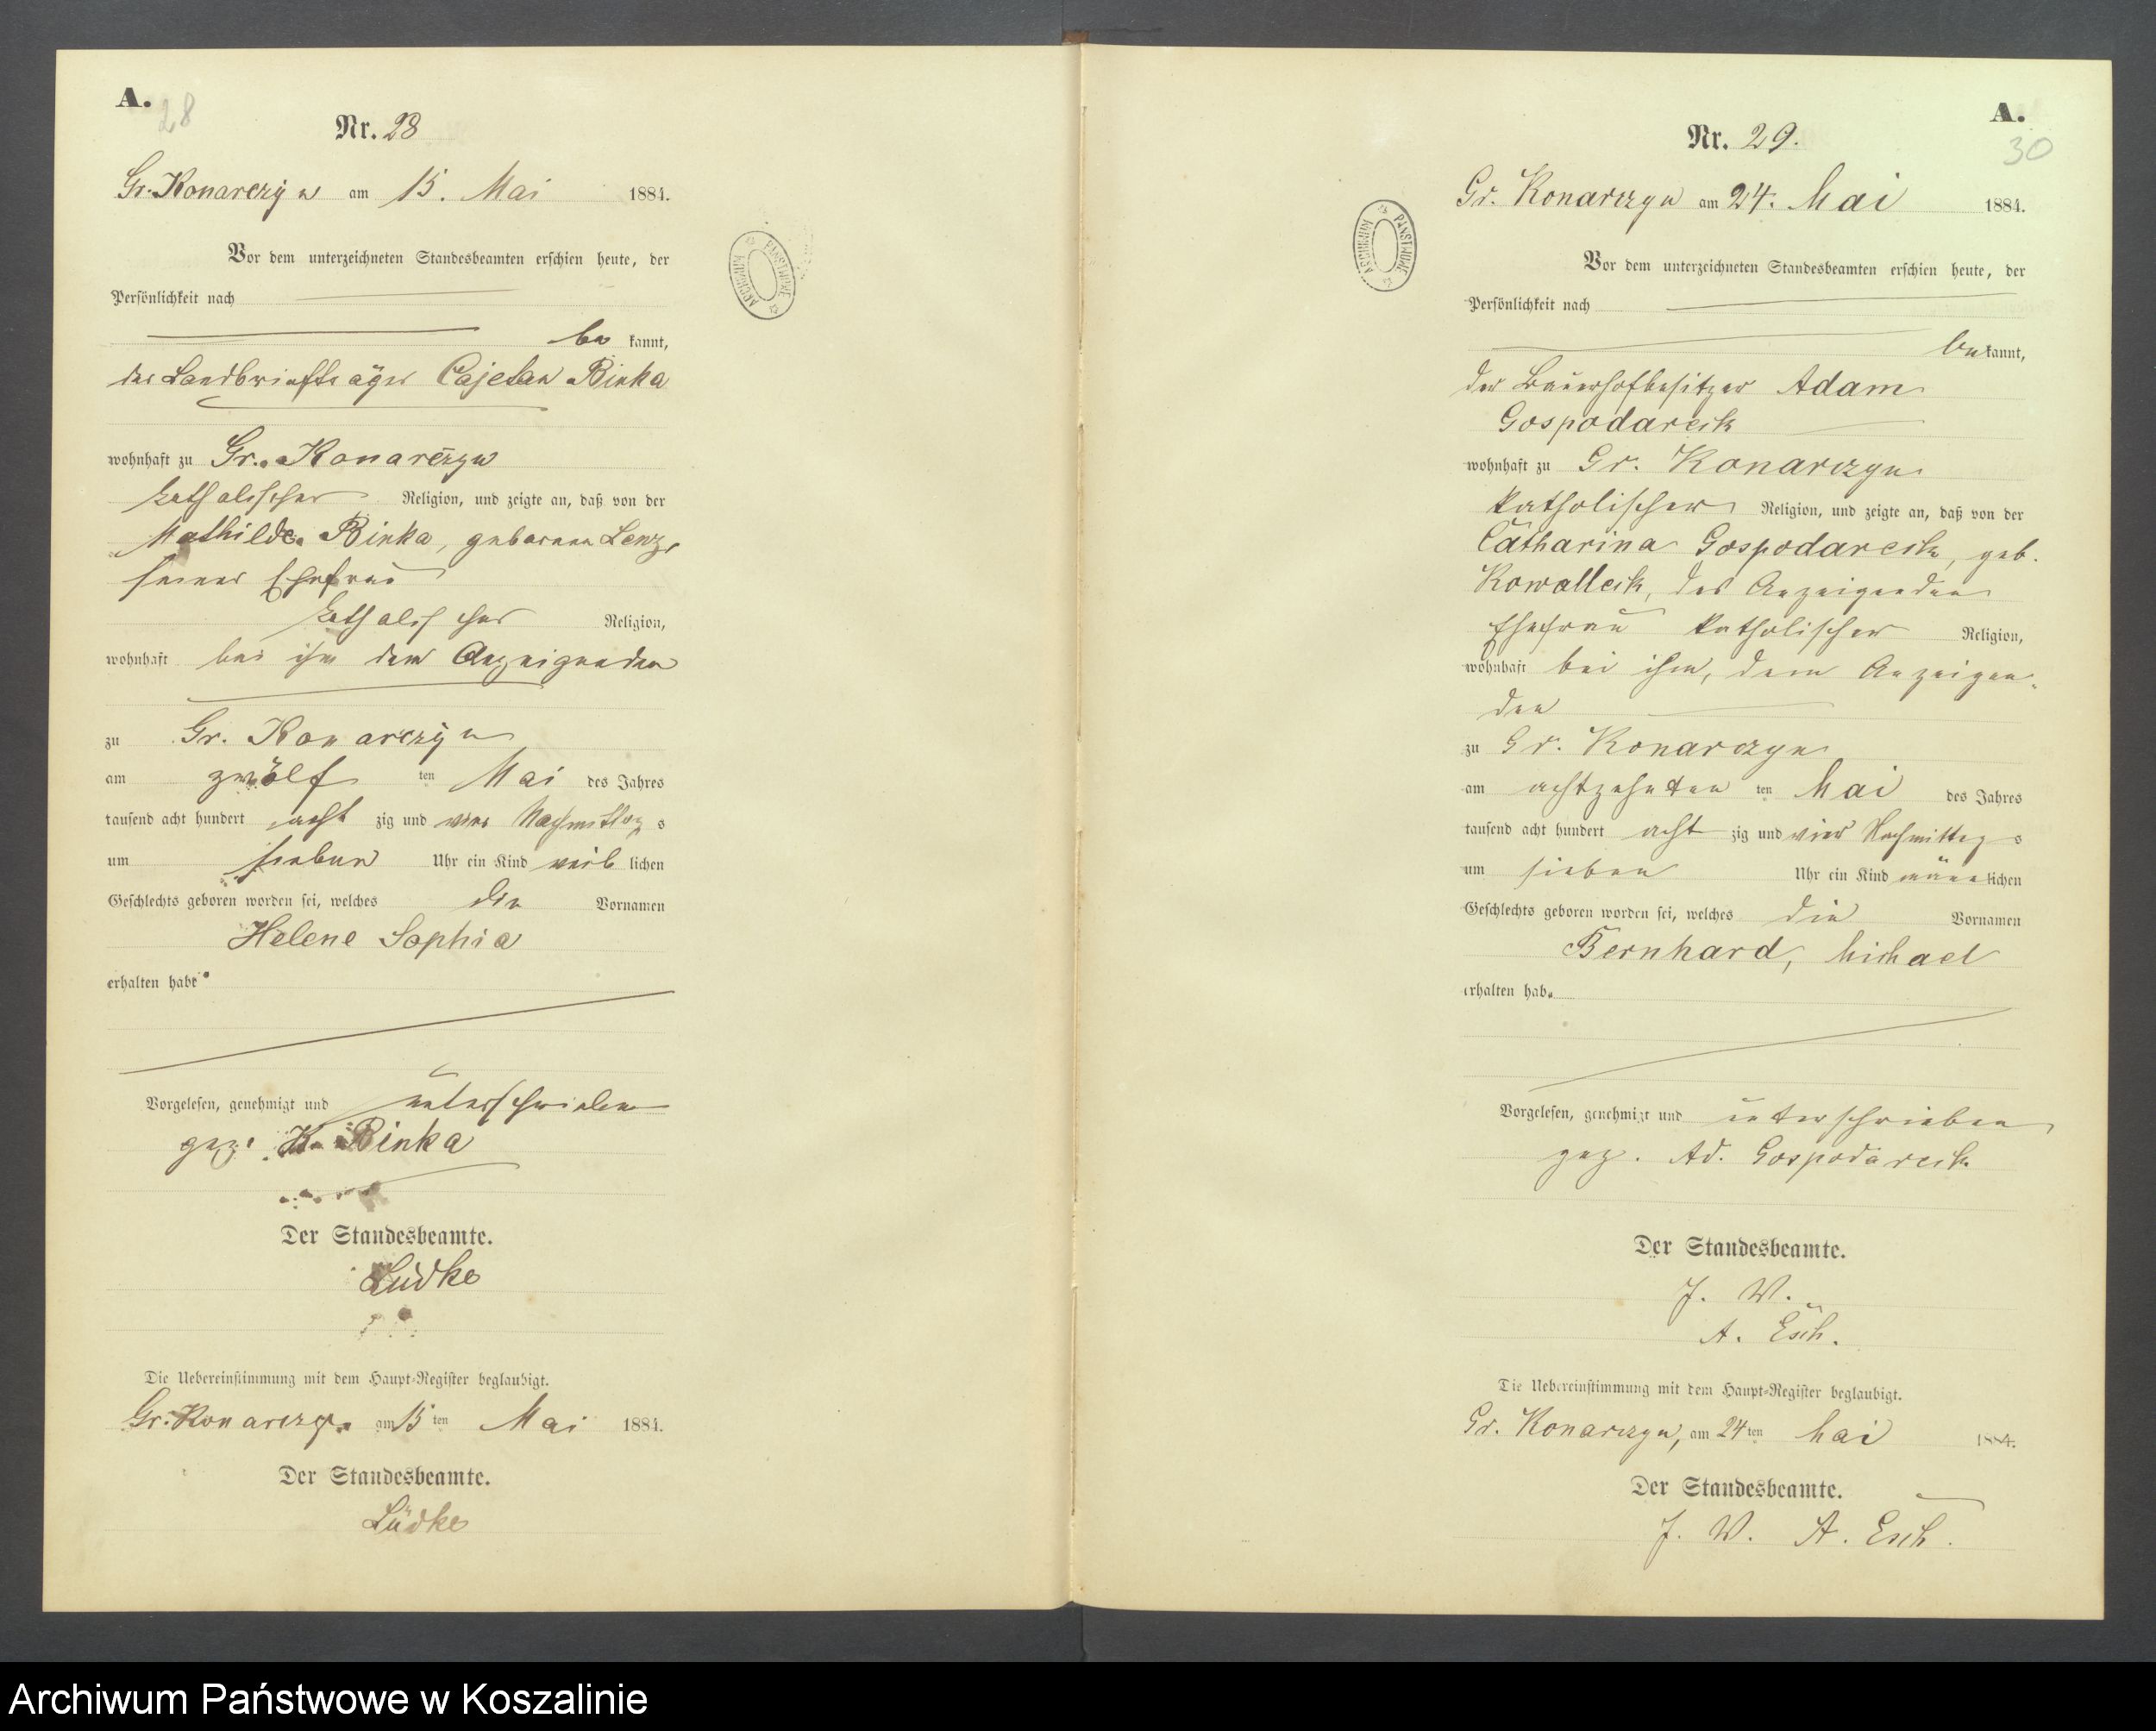 A.
28
Nr. 28
Gr. Konarczyn am 15. Mai 1884.
Vor dem unterzeichneten Standesbeamten erschien heute, der
Persönlichkeit nach
be kannt,
der Landbriefträger Cajetan Binka
wohnhaft zu Gr. Konarczyn
katholischer Religion, und zeigte an, daß von der
Mathilde Binka, geborenen Lenz,
seiner Ehefrau
katholischer Religion,
wohnhaft bei ihm dem Anzeigenden
zu Gr. Konarczyn
am zwölf ten Mai des Jahres
tausend acht hundert acht zig und vier Nachmittag s
um sieben Uhr ein Kind weib lichen
Geschlechts geboren worden sei, welches die Vornamen
Helene Sophia
erhalten habe
Vorgelesen, genehmigt und unterschrieben
gez. K. Binka
Der Standesbeamte.
Lüdke
Die Uebereinstimmung mit dem Haupt-Register beglaubigt.
Gr. Konarczyn am 15 ten Mai 1884.
Der Standesbeamte.
Lüdke
ARCHIWUM PAŃSTWOWE
A.
30
Nr. 29.
Gr. Konarczyn am 24. Mai 1884.
Vor dem unterzeichneten Standesbeamten erschien heute, der
Persönlichkeit nach
be kannt,
der Bauerhofbesitzer Adam
Gospodareck
wohnhaft zu Gr. Konarczyn
katholischer Religion, und zeigte an, daß von der
Catharina Gospodareck, geb.
Kowalleck, des Anzeigenden
Ehefrau katholischer Religion,
wohnhaft bei ihm, dem Anzeigen-
den
zu Gr. Konarczyn
am achtzehnten ten Mai des Jahres
tausend acht hundert acht zig und vier Nachmittag s
um sieben Uhr ein Kind männ lichen
Geschlechts geboren worden sei, welches die Vornamen
Bernhard, Michael
erhalten habe
Vorgelesen, genehmigt und unterschrieben
gez. Ad. Gospodareck
Der Standesbeamte.
J. V.
A. Esch.
Die Uebereinstimmung mit dem Haupt-Register beglaubigt.
Gr. Konarczyn, am 24 ten Mai 1884.
Der Standesbeamte.
J. V. A. Esch.
ARCHIWUM PAŃSTWOWE
Archiwum Państwowe w Koszalinie